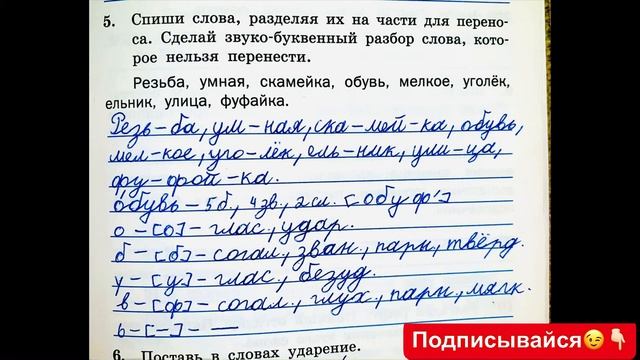 5. Спиши слова, разделяя их на части для перено-
са. Сделай звуко-буквенный разбор слова, кото-
рое нельзя перенести.
Резьба, умная, скамейка, обувь, мелкое, уголёк,
ельник, улица, фуфайка.
Резь-ба, ум-ная, ска-мей-ка, обувь,
мел-кое, уго-лёк, ель-ник, ули-ца,
фу-фай-ка.
обувь - 5 б, 4 зв., 2 сл. [обуф']
о - [о] - глас, удар.
б - [б] - согл., звон., парн, твёрд.
у - [у] - глас., безуд.
в - [ф] - согл., глух., парн, мягк.
ь - [-] - —
6. Поставь в словах ударение.
Подписывайся😉👇